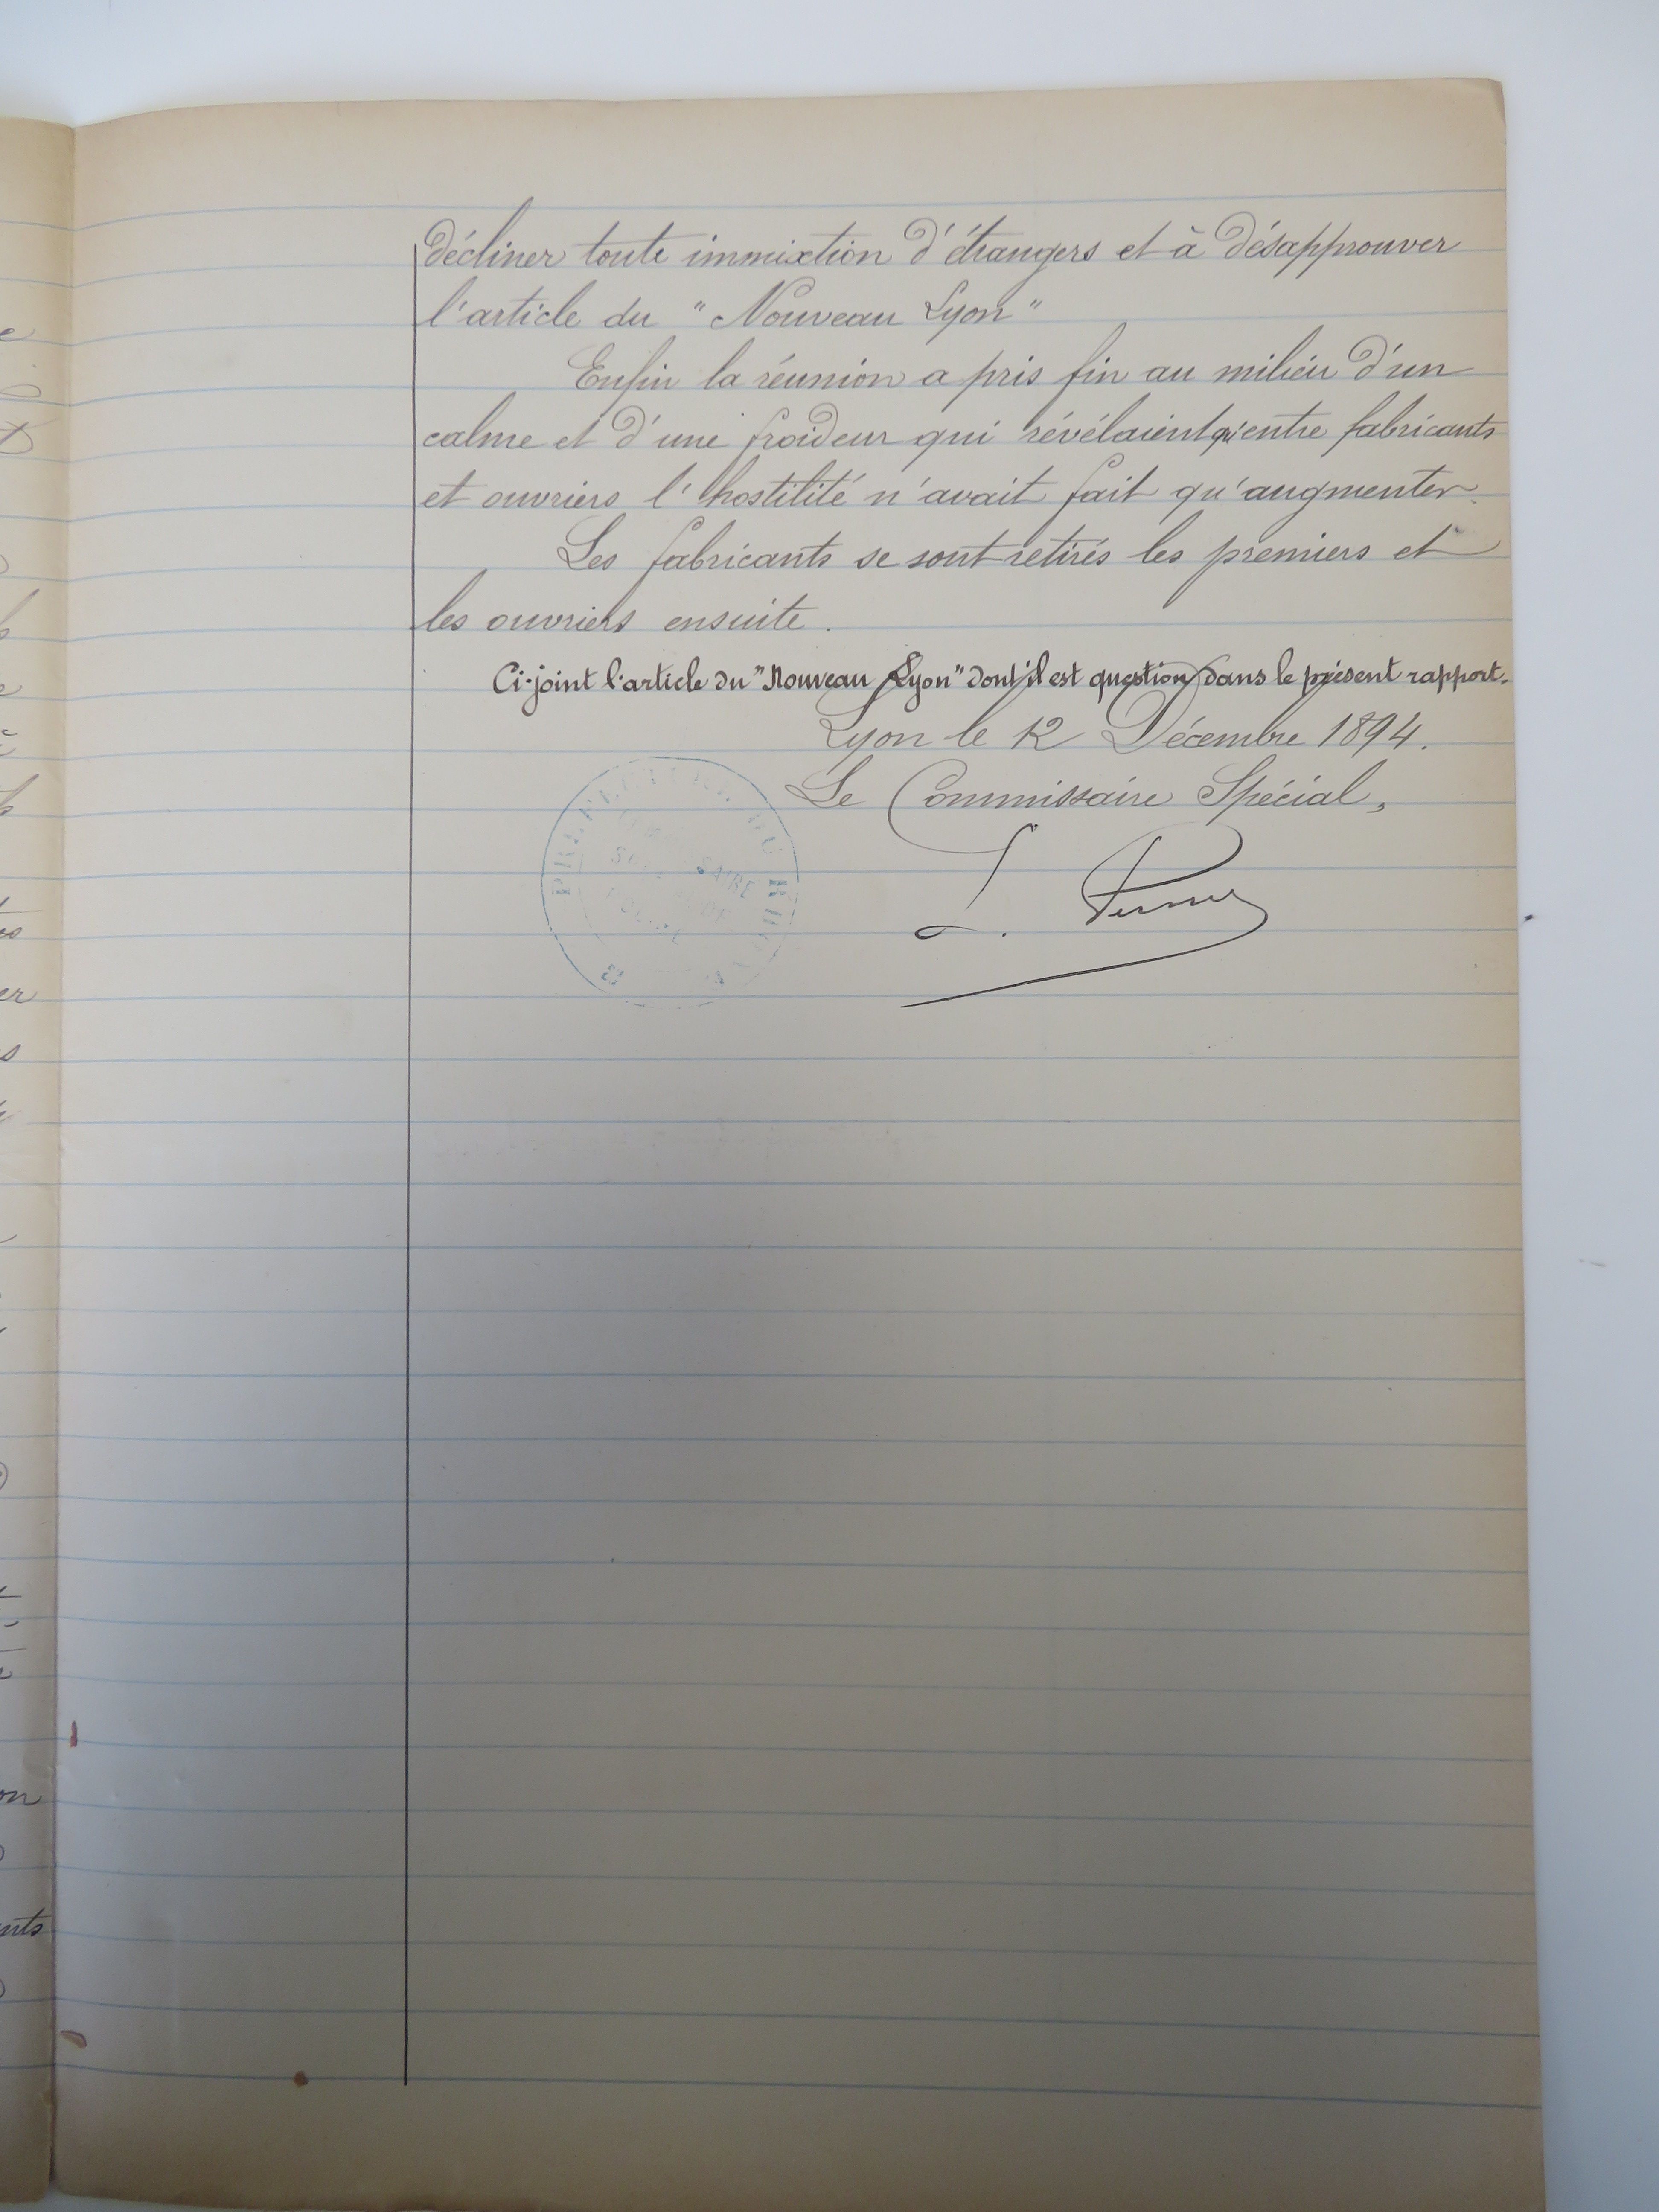 décliner toute immixtion d'étrangers et à désapprouver
l'article du "Nouveau Lyon"
Enfin la réunion a pris fin au milieu d'un
calme et d'une froideur qui révélaient qu'entre fabricants
et ouvriers l'hostilité n'avait fait qu'augmenter.
Les fabricants se sont retirés les premiers et
les ouvriers ensuite.
Ci-joint l'article du "Nouveau Lyon" dont il est question dans le présent rapport.
Lyon le 12 Décembre 1894.
Le Commissaire Spécial,